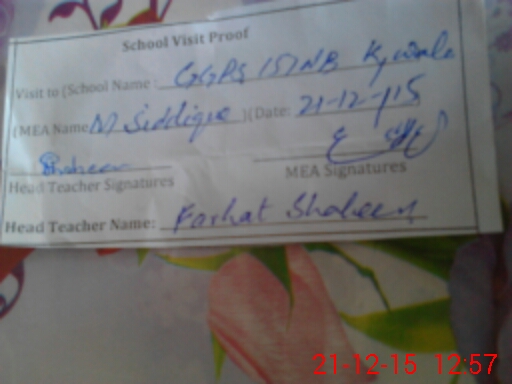 School Visit Proof
Visit to (School Name: GGPS 151NB K, wala
(MEA Name M Siddique )(Date: 21-12-15
Shaheen
Head Teacher Signatures MEA Signatures
Head Teacher Name: Farhat Shaheen
21-12-15 12:57